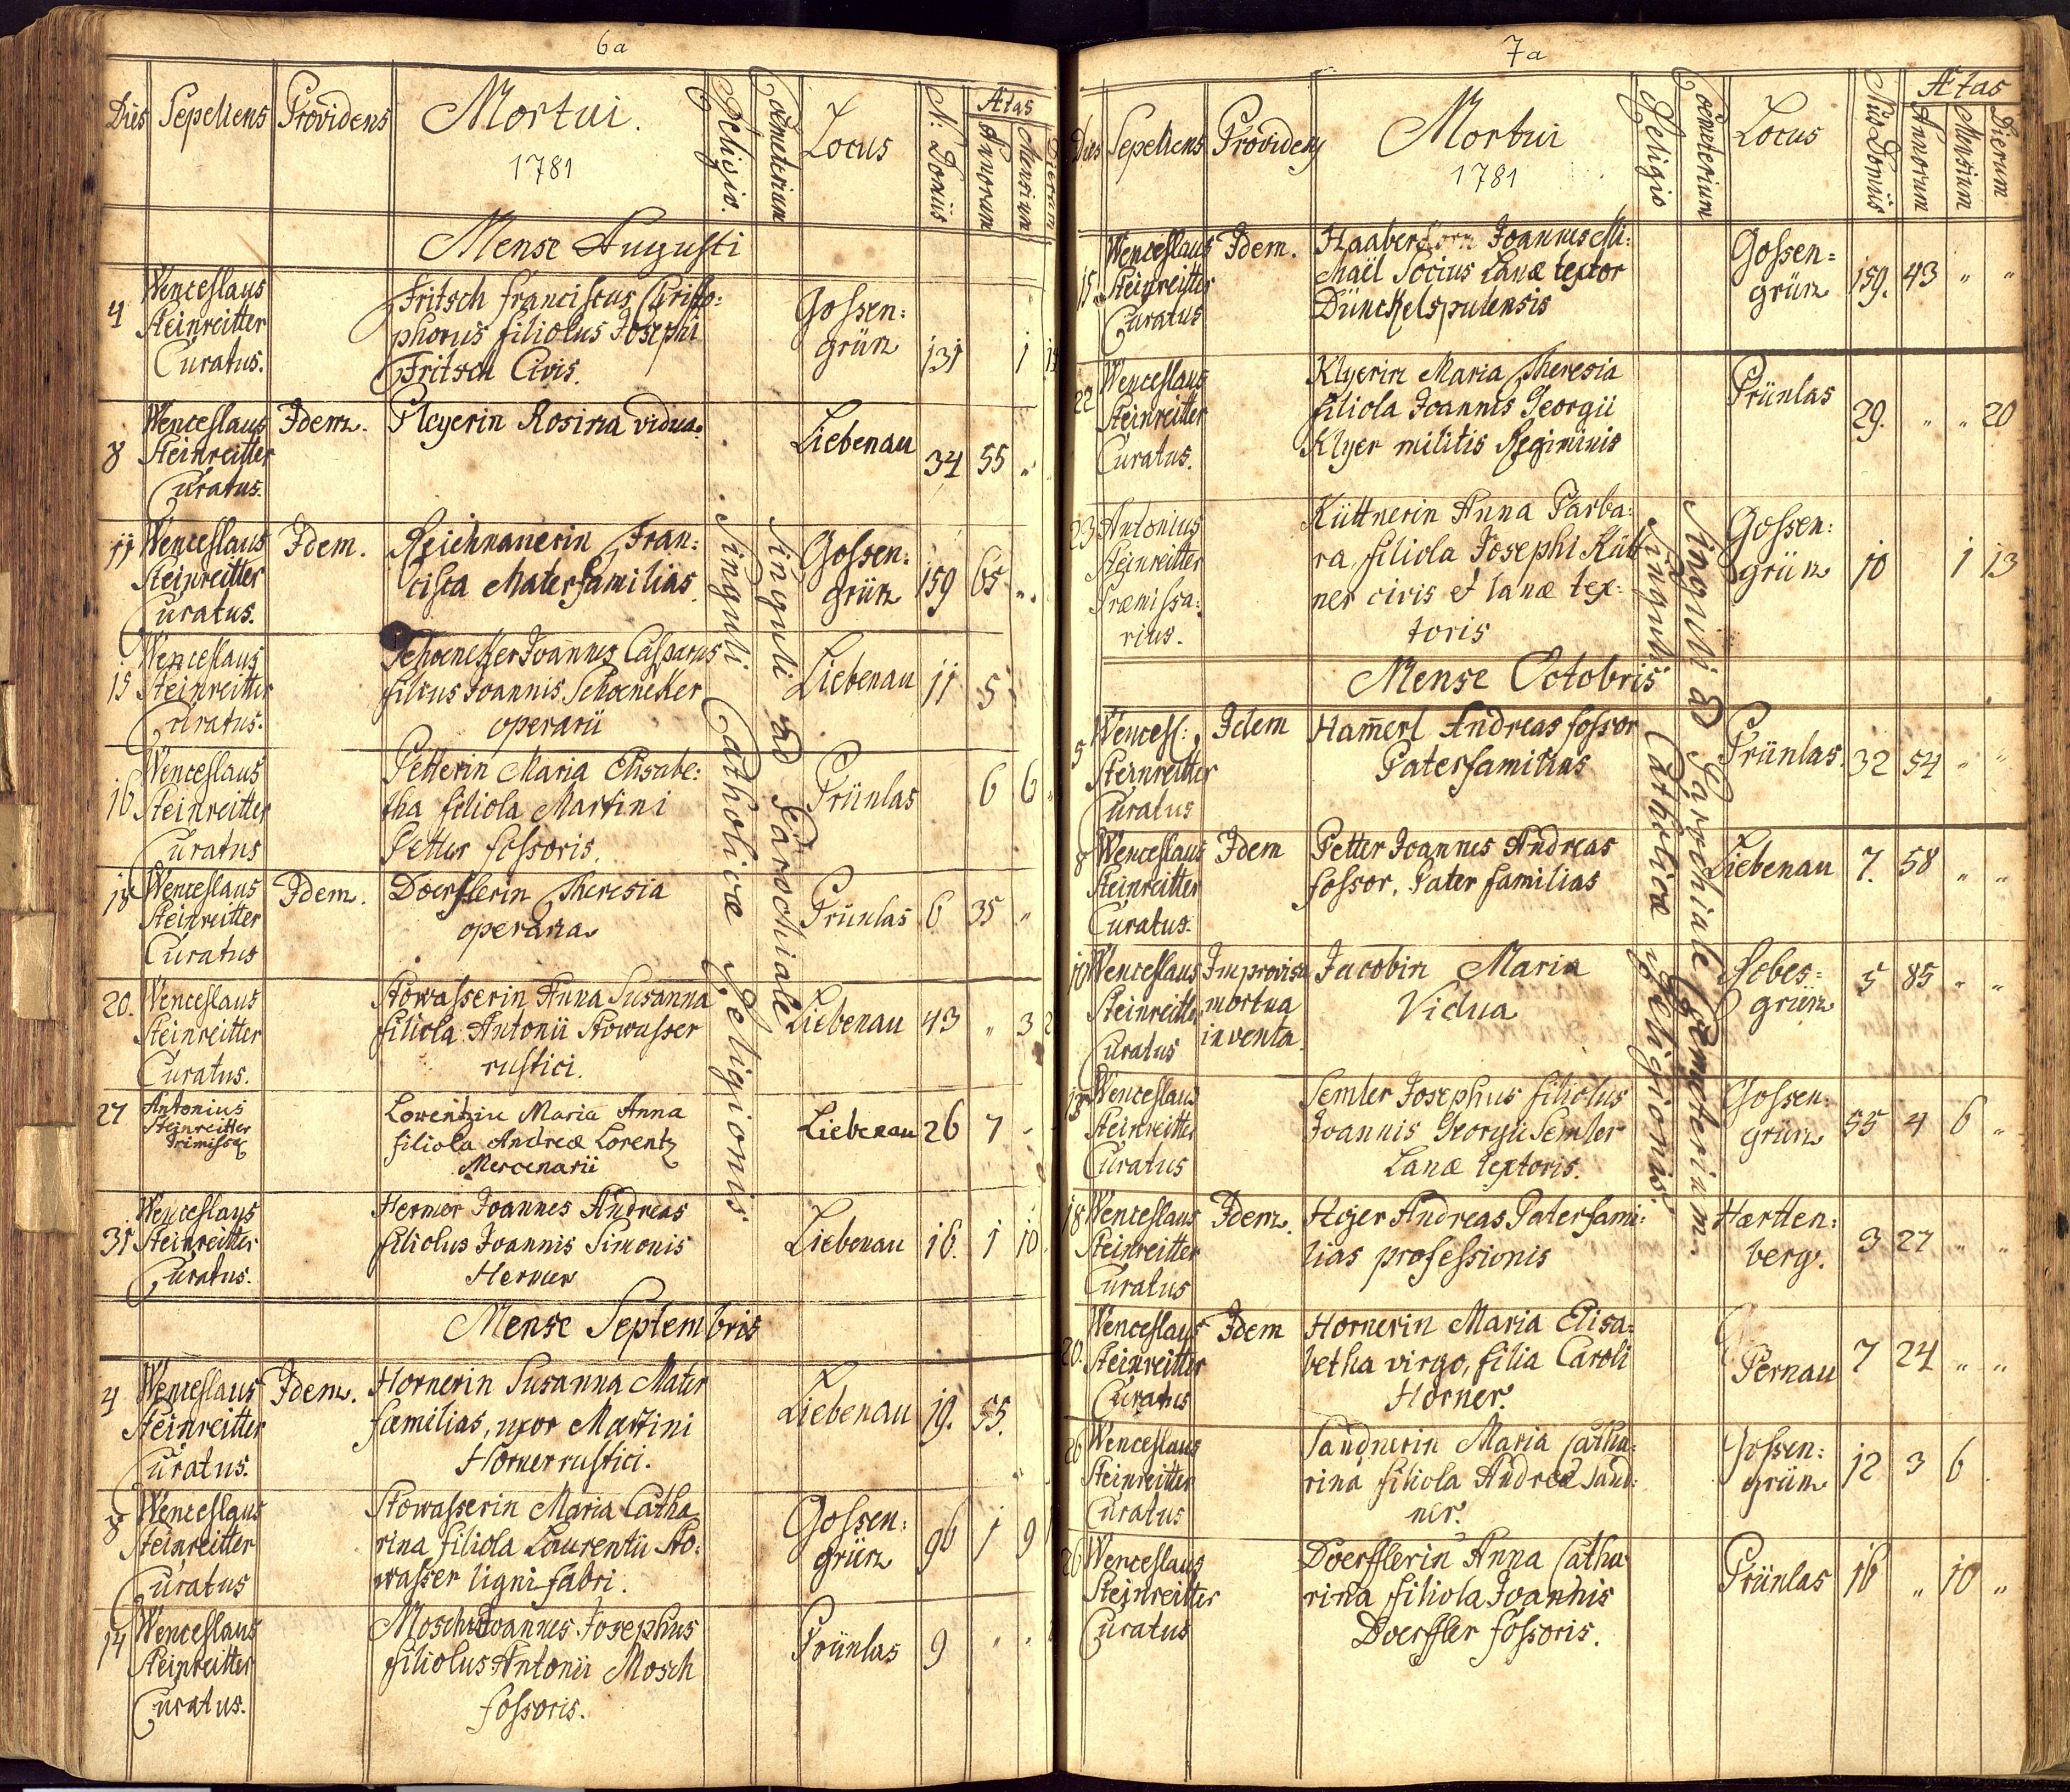 6a
Dies Sepeliens Providens Mortui. Religio. Coemeterium Locus N: Domûs Ætas Annorum Mensium Dierum
1781
Mense Augusti
4 Wenceslaus Steinreitter Curatus.
Fritsch Franciscus Christo:
phorus filiolus Josephi
Fritsch Civis.
Gossen:
grün 131 1
8 Wenceslaus Steinreitter Curatus. Idem.
Pleyerin Rosina vidua.
Liebenau 34 55 "
11 Wenceslaus Steinreitter Curatus. Idem.
Reichnauerin Fran:
cisca Materfamilias
Gossen:
grün 159 65 "
15 Wenceslaus Steinreitter Curatus.
Schoenecker Joannes Casparus
filius Joannis Schoeneker
operarii
Liebenau 11 5
16 Wenceslaus Steinreitter Curatus
Petterin Maria Elisabe:
tha filiola Martini
Petter fossoris.
Prünlas 6 6 "
18 Wenceslaus Steinreitter Curatus Idem.
Doerflerin Theresia
operaria
Prünlas 6 35 "
20. Wenceslaus Steinreitter Curatus.
Stowasserin Anna Susanna
filiola Antonii Stowasser
rustici.
Liebenau 43 " 3 2
27 Antonius Steinreitter Primissa
Lorentzin Maria Anna
filiola Andreæ Lorentz
Mercenarii
Liebenau 26 7 "
31 Wenceslaus Steinreitter Curatus.
Hermer Joannes Andreas
filiolus Joannis Simonis
Hermer
Liebenau 16. 1 10
Singuli Catholicæ Religionis
Singuli ad Parochiale
Mense Septembris
4 Wenceslaus Steinreitter Curatus. Idem.
Hornerin Susanna Mater
familias, uxor Martini
Horner rustici.
Liebenau 19. 55.
8 Wenceslaus Steinreitter Curatus
Stowasserin Maria Catha
rina filiola Laurentii Sto:
wasser lignifabri.
Gossen:
grün 96 1 9
14 Wenceslaus Steinreitter Curatus.
Mosch Joannes Josephus
filiolus Antonii Mosch
fossoris.
Prünlas 9 " "
7a
Dies Sepeliens Providens Mortui Religio Coemeterium Locus Nus Domûs Ætas Annorum Mensium Dierum
1781
15 Wenceslaus Steinreitter Curatus Idem.
Haaberkorn Joannes Mi:
chaël Socius Lanæ textor
Dünckelspulensis
Gossen=
grün 159. 43 " "
22 Wenceslaus Steinreitter Curatus.
Klyerin Maria Theresia
filiola Joannis Georgii
Klyer militis Regiminis
Prünlas 29. " " 20
23 Antonius Steinreitter Præmissa:
rius.
Küttnerin Anna Barba:
ra, filiola Josephi Kütt
ner civis et lanæ tex:
toris
Gossen:
grün 10 1 13
Mense Octobris
5 Wencesl: Steinreitter Curatus Idem
Ham̄erl Andreas fossor
Paterfamilias
Prünlas. 32 54 " "
8 Wenceslaus Steinreitter Curatus. Idem
Petter Joannes Andreas
fossor, Pater familias
Liebenau 7. 58 " "
10 Wenceslaus Steinreitter Curatus Improvisa
mortua
inventa.
Jacobin Maria
Vidua
Robes=
grün 5 85 " "
Wenceslaus Steinreitter Curatus
Semler Josephus filiolus
Joannis Georgii Semler
Lanæ textoris.
Gossen:
grün 55 4 6 "
18 Wenceslaus Steinreitter Curatus Idem.
Hojer Andreas Paterfami:
lias professionis
Hartten:
berg. 3 27 " "
20. Wenceslaus Steinreitter Curatus Idem
Hornerin Maria Elisa=
betha virgo, filia Caroli
Horner.
Pernau 7 24 " "
26 Wenceslaus Steinreitter Curatus
Sandnerin Maria Catha:
rina filiola Andreæ Sand:
ner.
Gossen:
grün 12 3 6
26 Wenceslaus Steinreitter Curatus
Doerfflerin Anna Catha
rina filiola Joannis
Doerffler fossoris.
Prünlas 16 " 10 "
Singuli Catholicæ Religionis.
Singuli ad Parochiale Coemeterium.